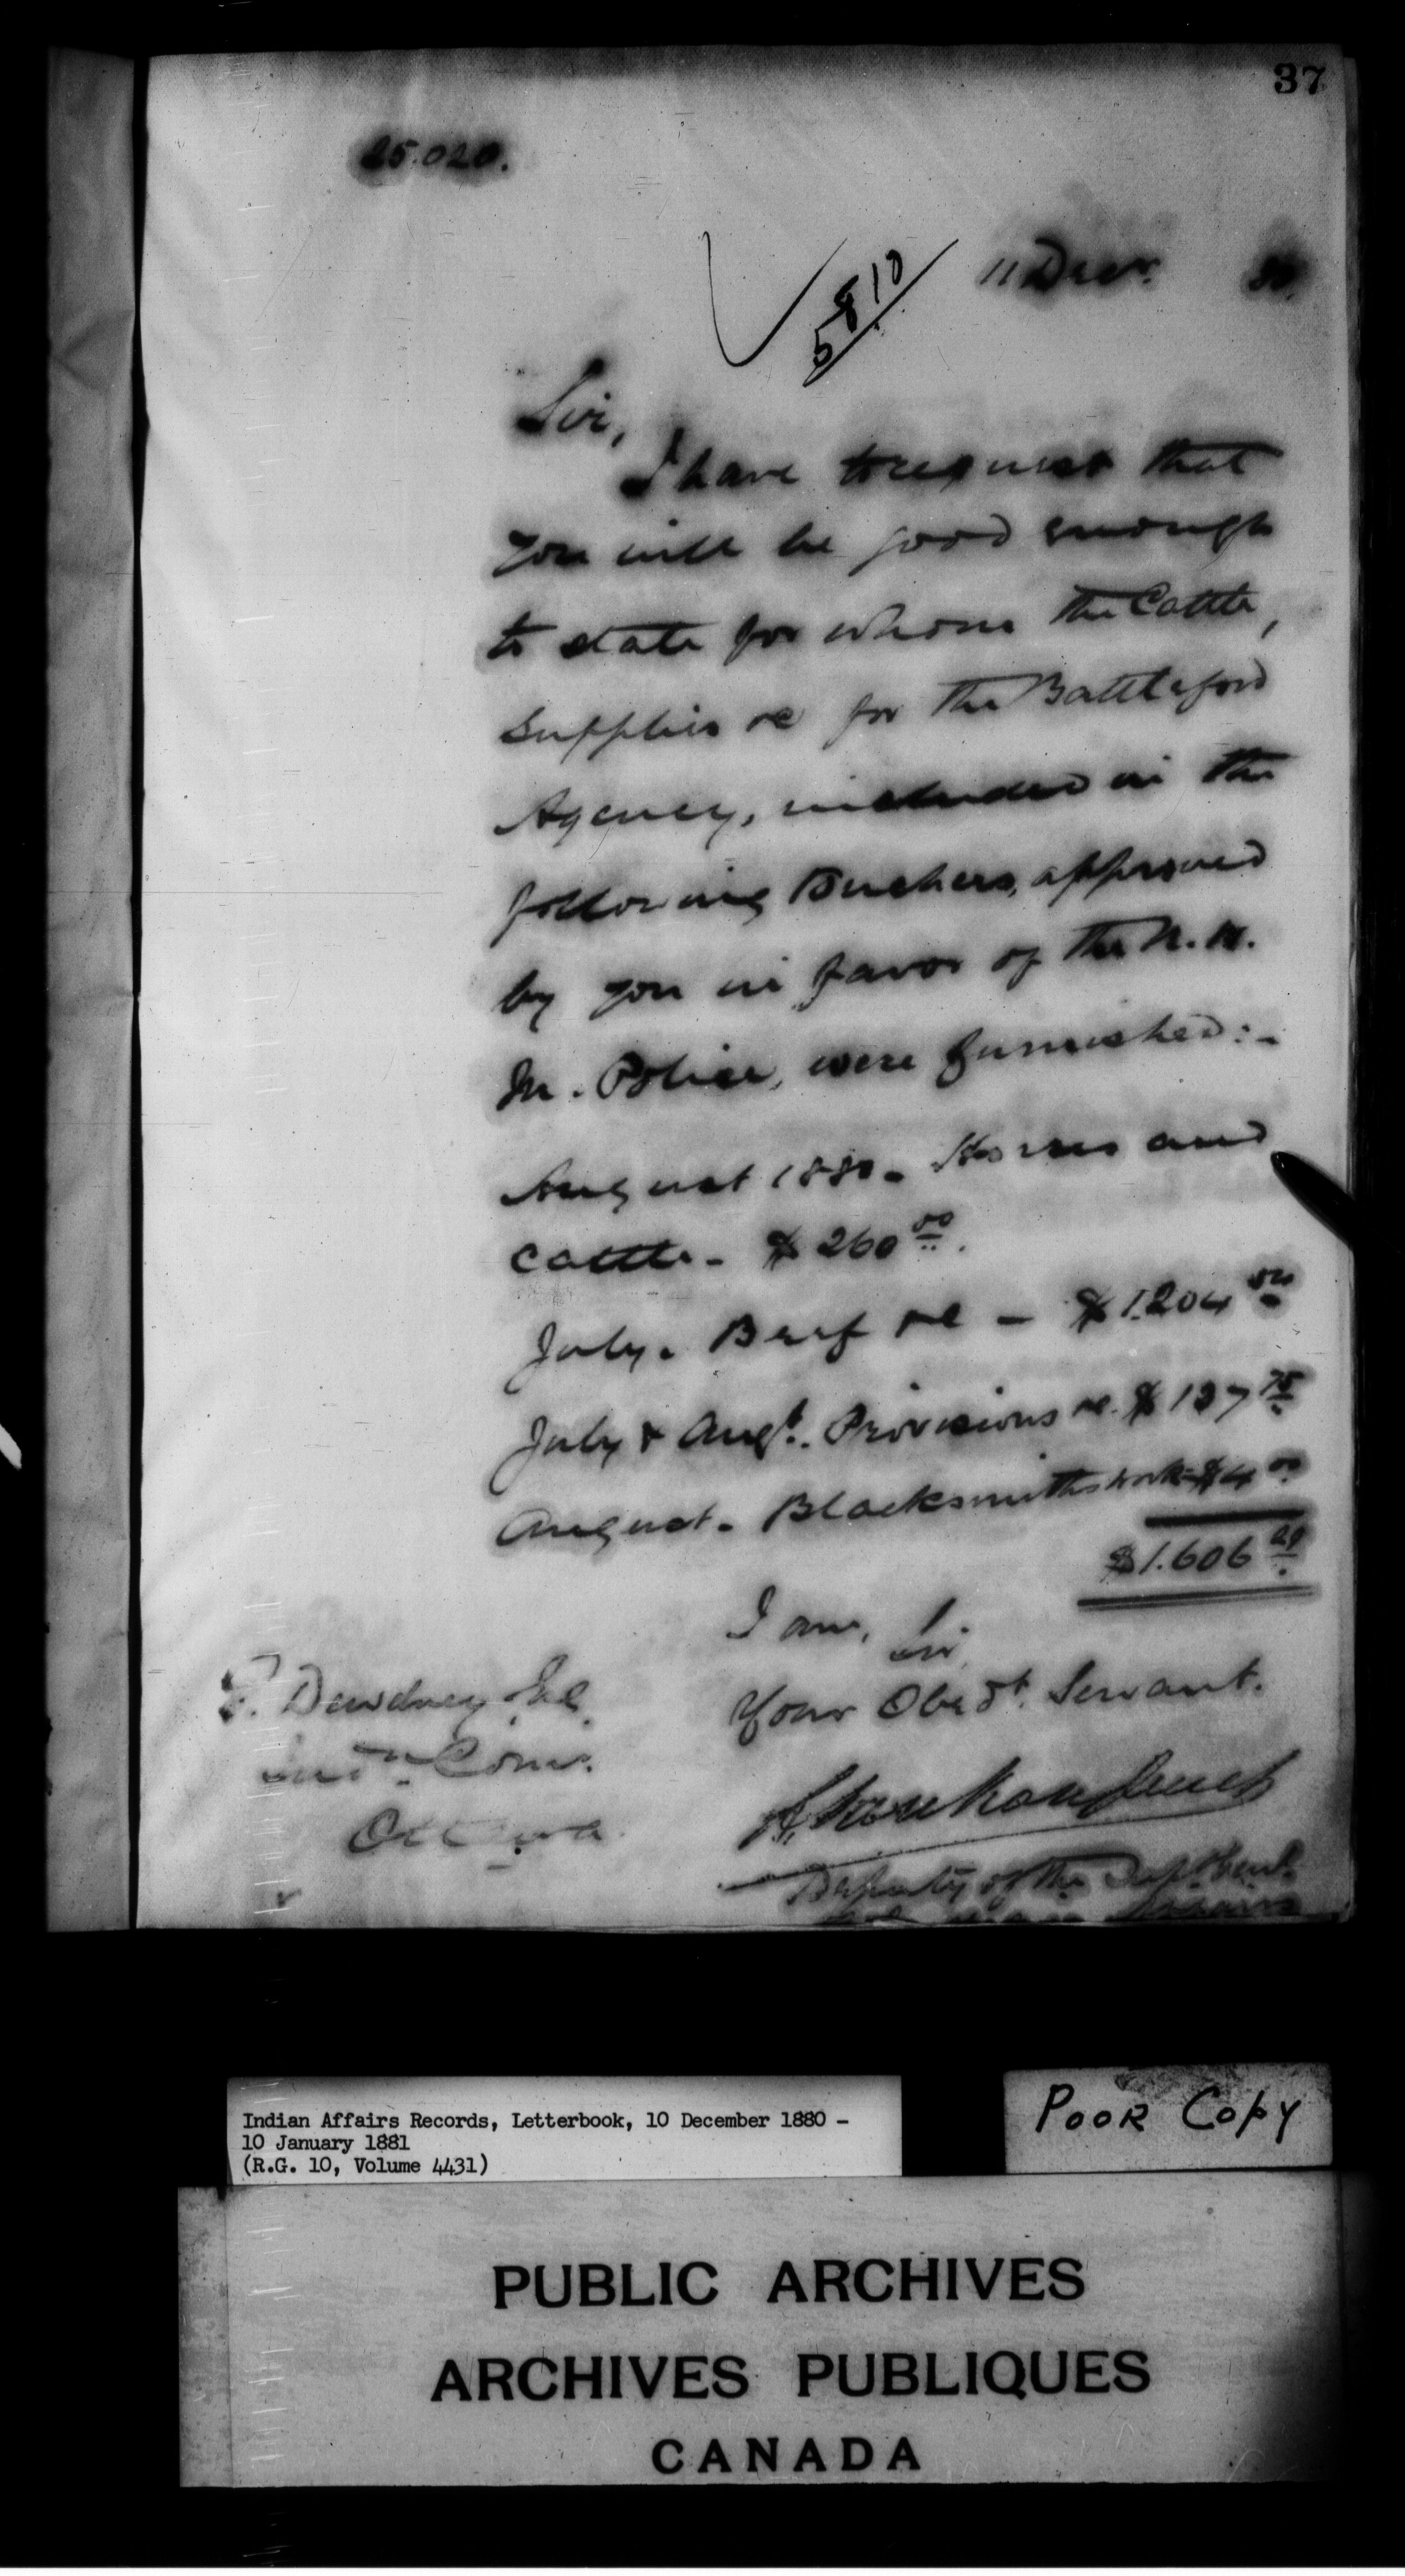 37
25.020.
11 Decr. 80.
5 8 10
Sir,
I have to request that
you will be good enough
to state for whom the Cattle,
Supplies &c for the Battleford
Agency, included in the
following Vouchers, approved
by you in favor of the N. W.
M. Police, were furnished:-
August 1880 - Horses and
Cattle - $260 00.
July. Beef &c - $1.204
July & Augt. Provisions &c. $137 75
August. Blacksmiths work $4 00
$1.606
I am, Sir
Your Obedt. Servant.
E. Dewdney Esq.
Indn. Comr.
Ottawa
L. Vankoughnet
Deputy of the Supt. Genl.
Affairs
Indian Affairs Records, Letterbook, 10 December 1880 -
10 January 1881
(R.G. 10, Volume 4431)
POOR COPY
PUBLIC ARCHIVES
ARCHIVES PUBLIQUES
CANADA